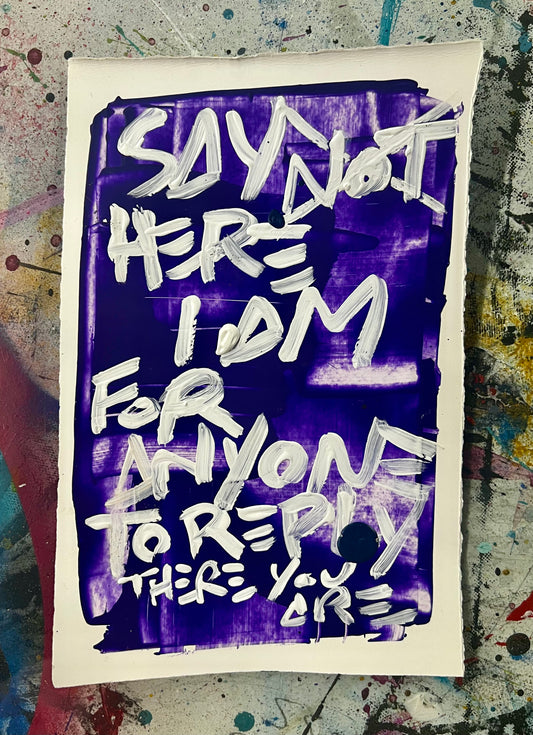 SAY NOT
HERE
I AM
FOR
ANYONE
TO REPLY
THERE YOU
ARE